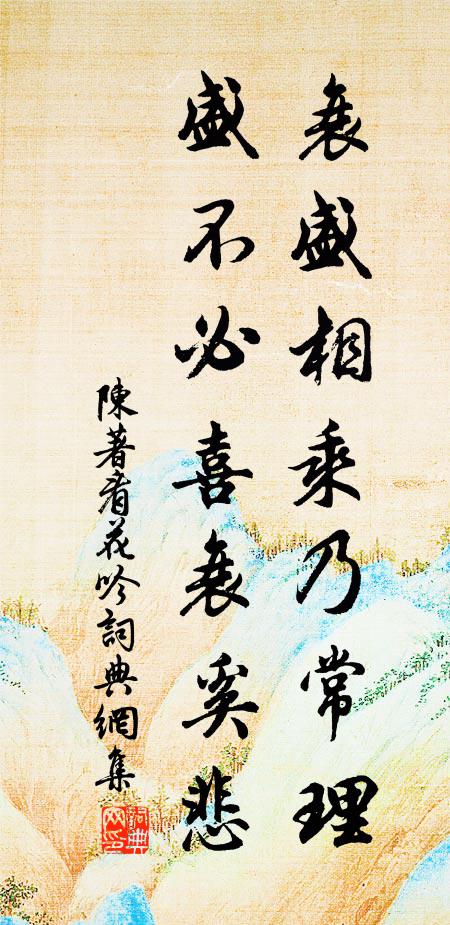 衰盛相乘乃常理
盛不必喜衰奚悲
陳著看花吟詞典網集
詞典网印